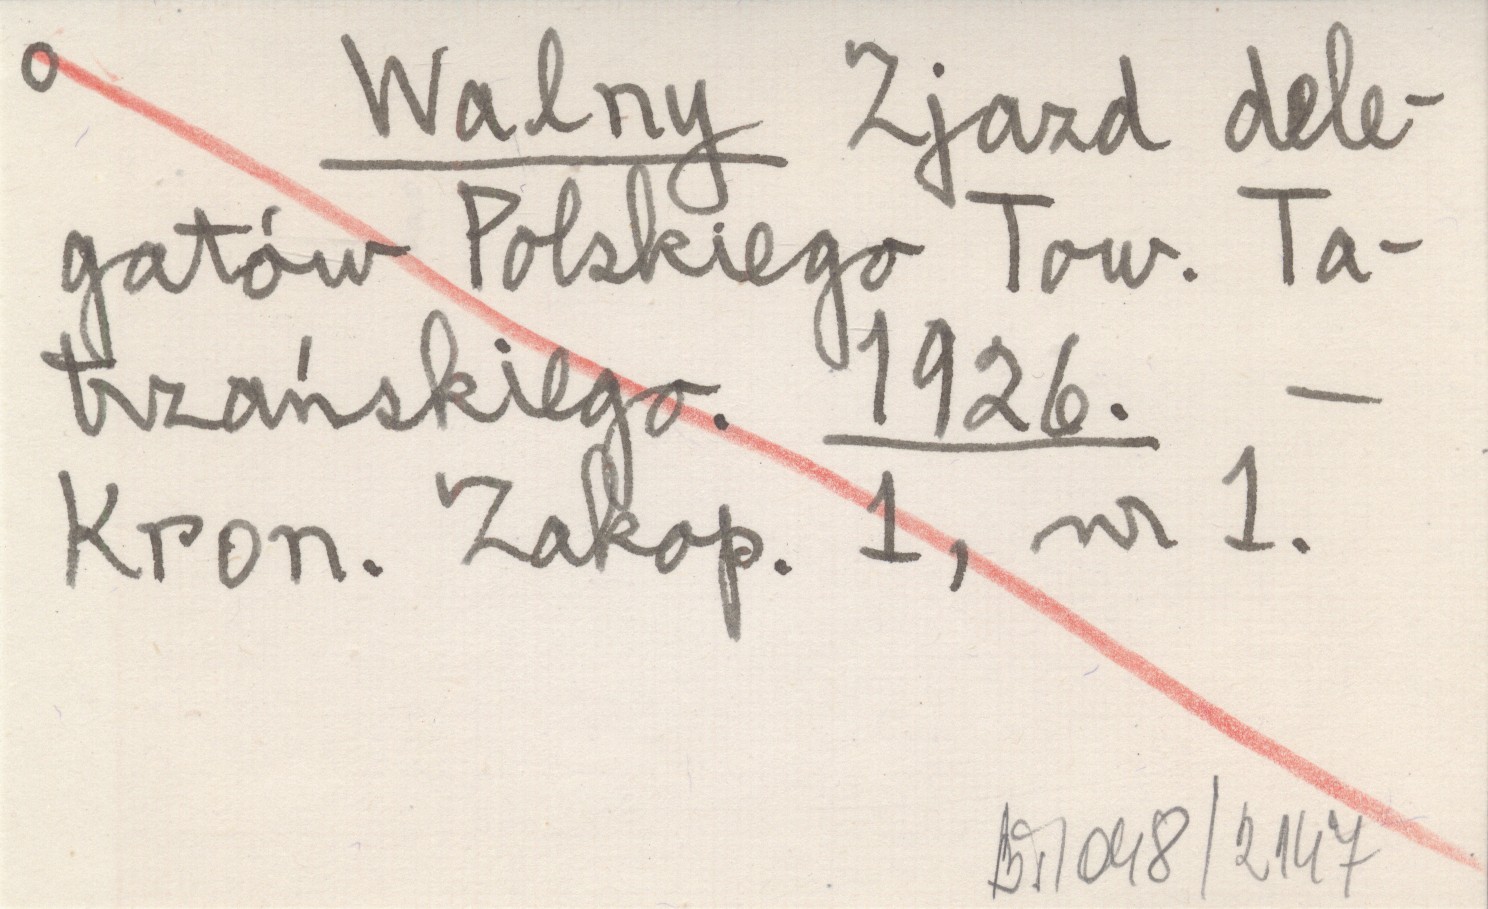 o Walny Zjazd dele-
gatów Polskiego Tow. Ta-
trzańskiego. 1926. —
Kron. Zakop. 1, nr 1.
048/2147